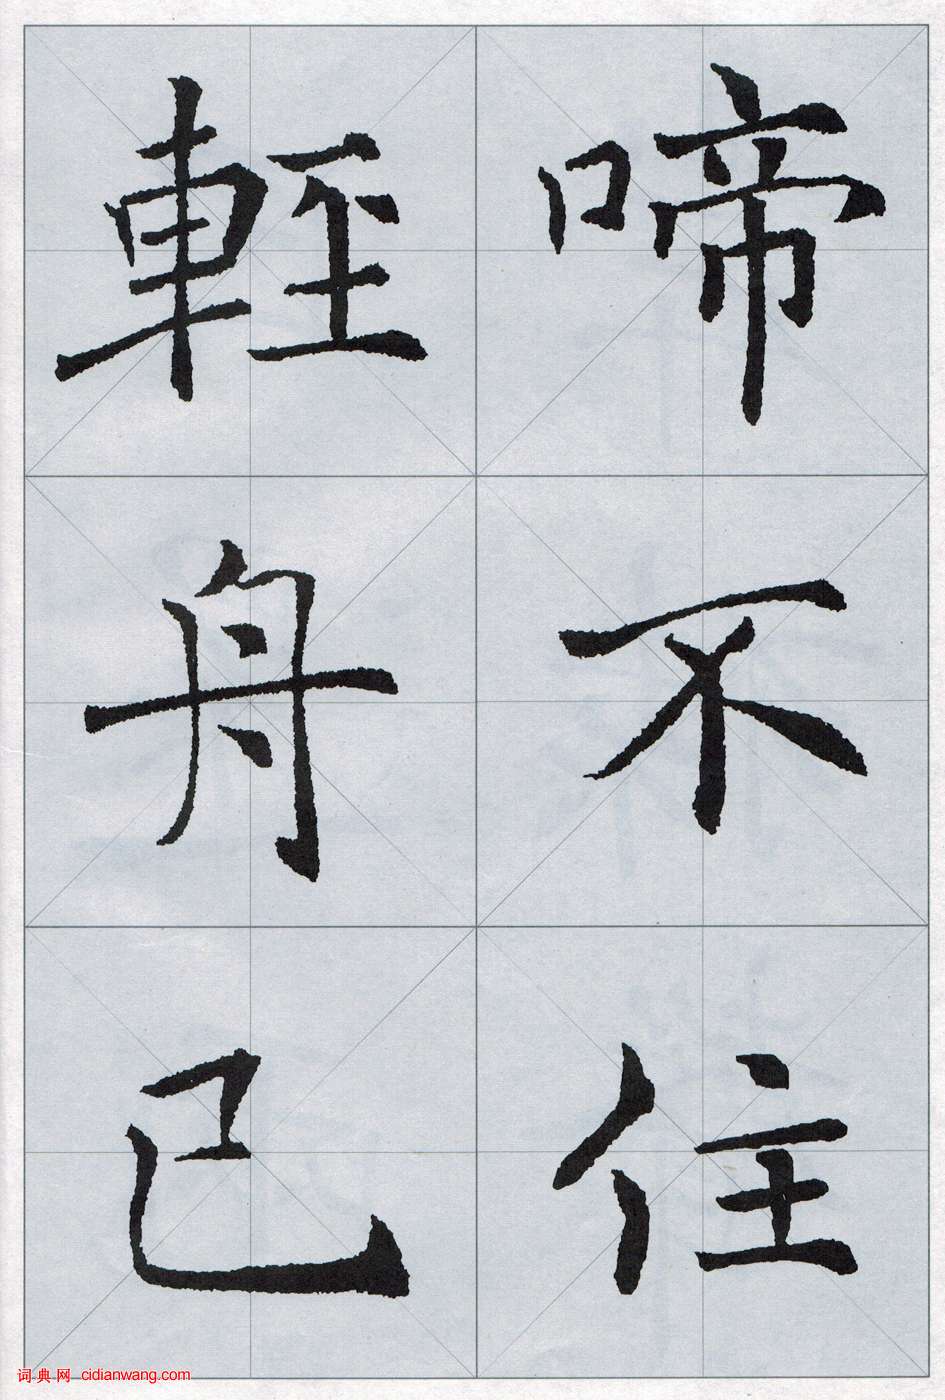 啼不住
輕舟已
词典网 cidianwang.com